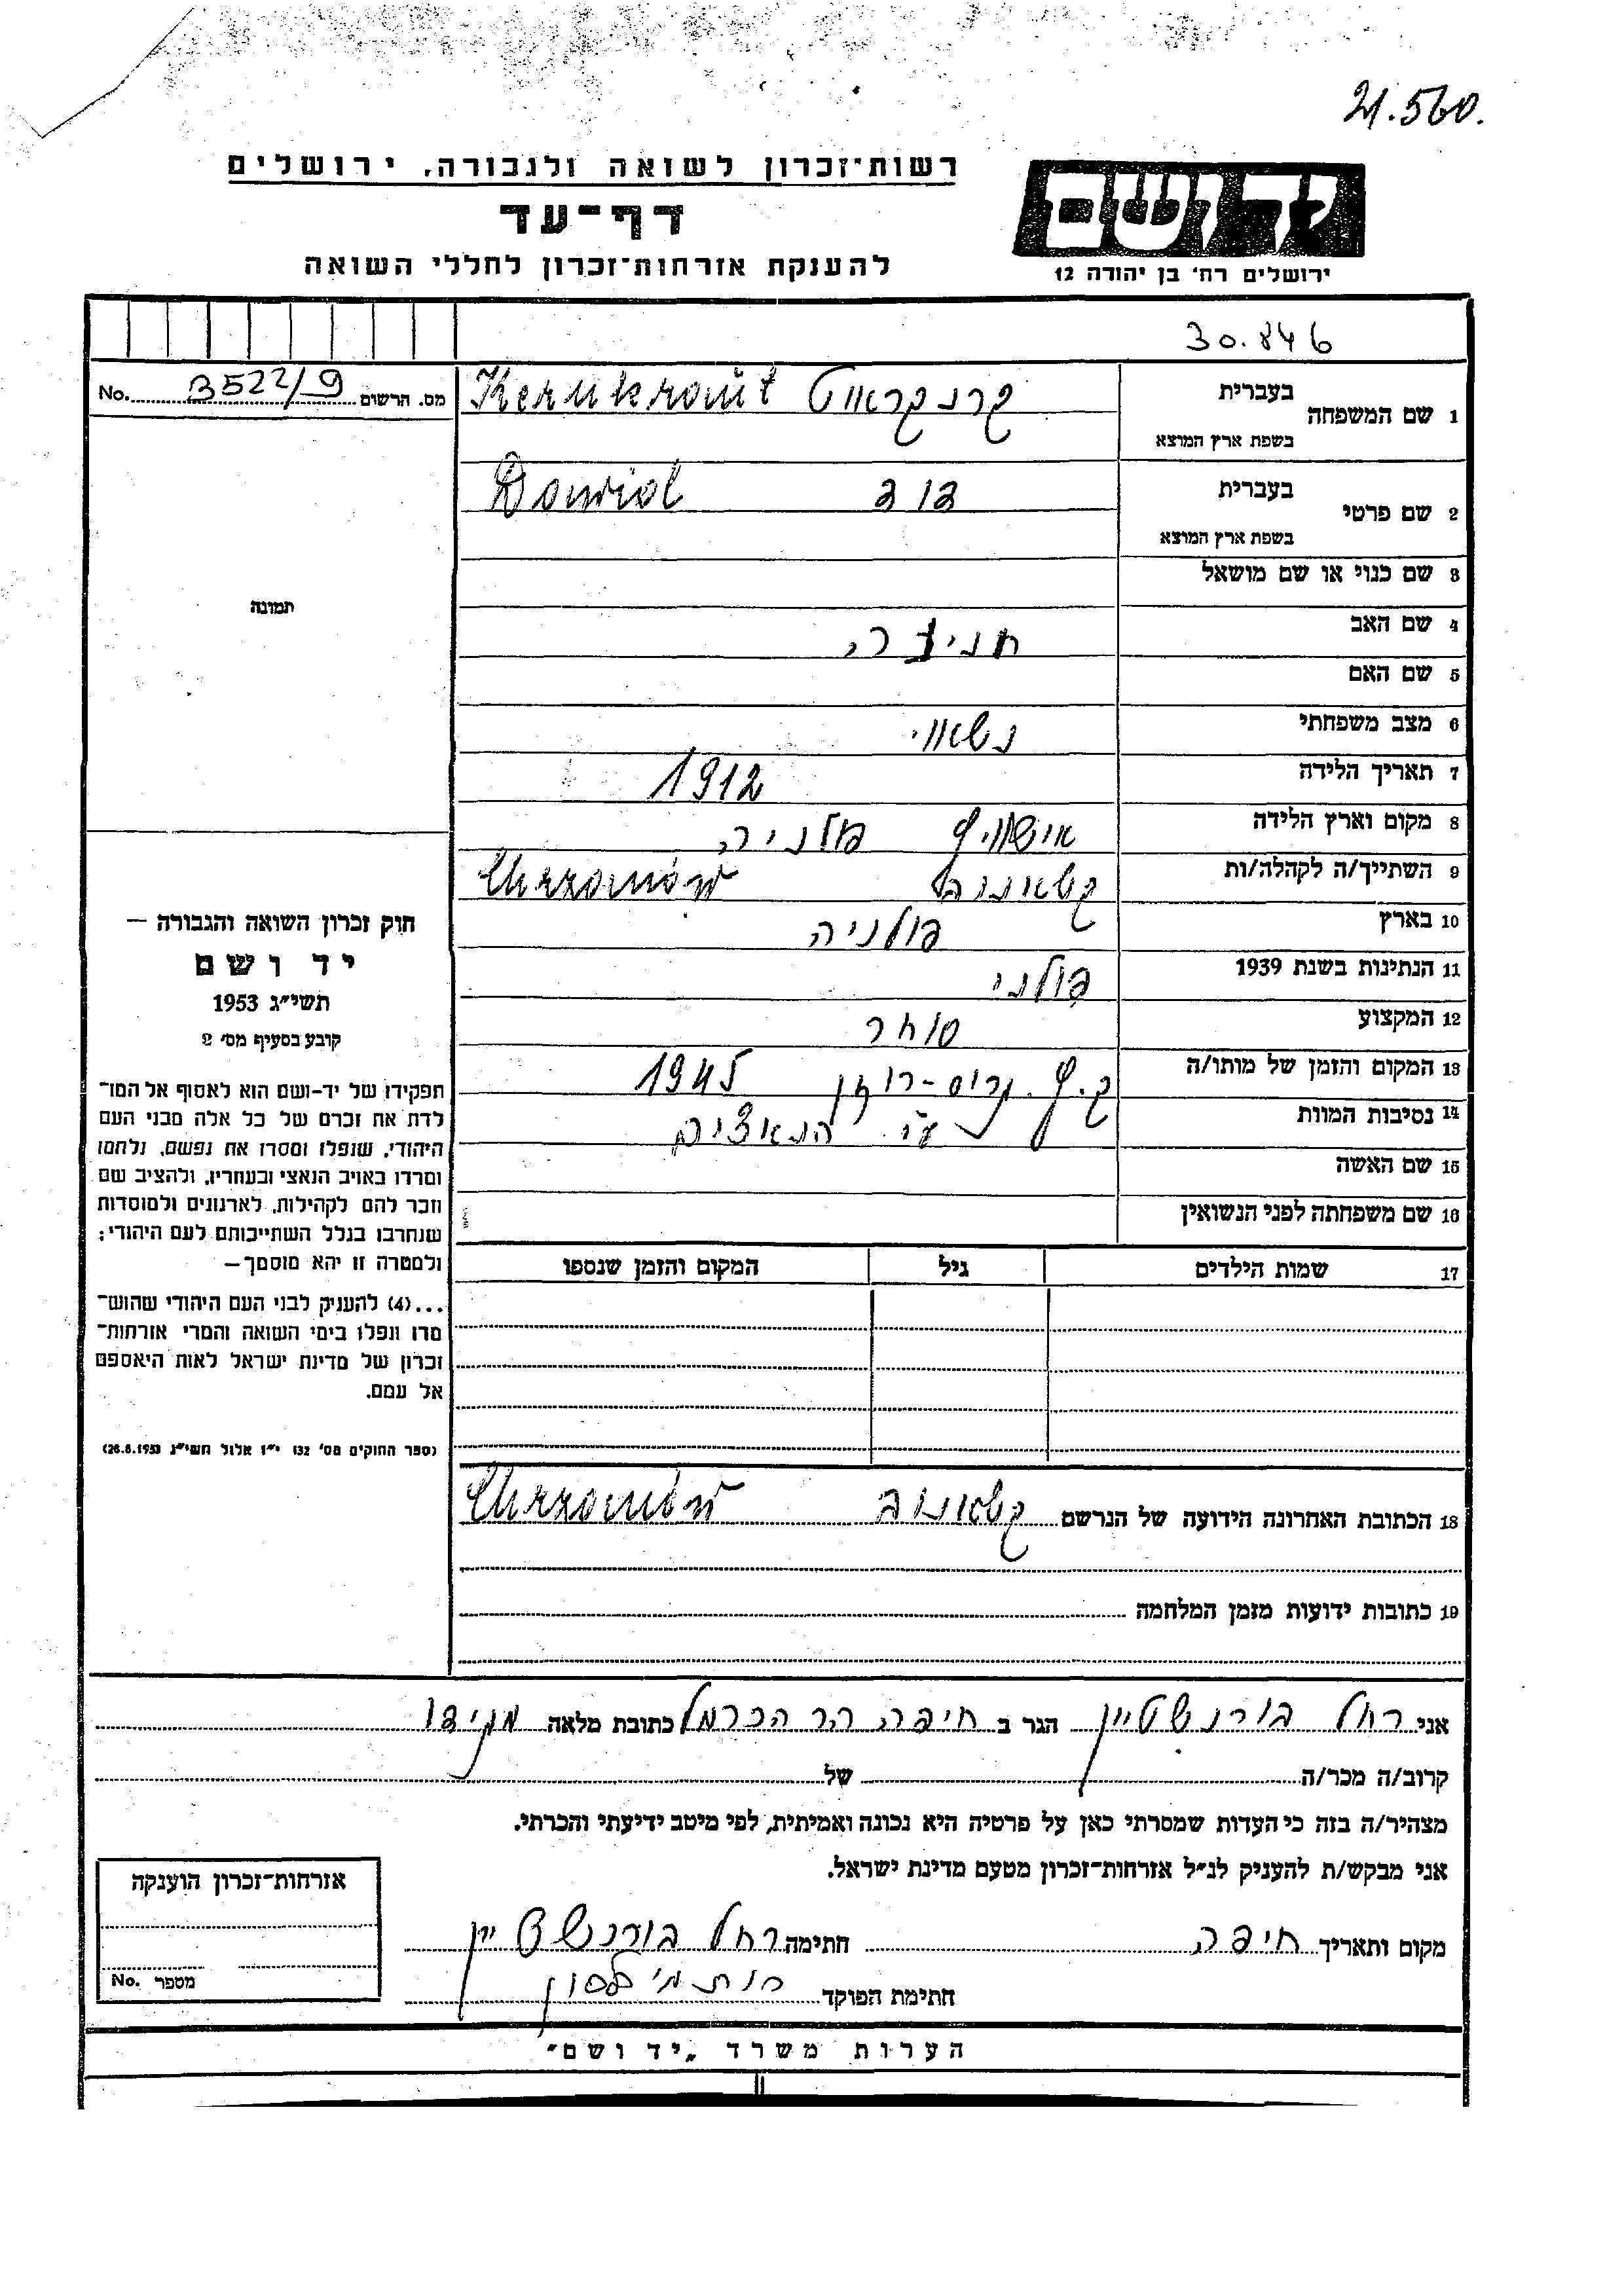 21.560.
רשות־זכרון לשואה ולגבורה, ירושלים
דף־עד
להענקת אזרחות־זכרון לחללי השואה
יד ושם
ירושלים רח' בן יהודה 12
30.846
No. 3522/9 מס. הרשום
1 שם המשפחה בעברית בשפת ארץ המוצא קרנקראוט
2 שם פרטי בעברית בשפת ארץ המוצא דוד Dawid
3 שם כנוי או שם מושאל
תמונה
4 שם האב
5 שם האם
6 מצב משפחתי נשאוי
7 תאריך הלידה 1912
8 מקום וארץ הלידה פולניה
9 השתייך/ה לקהלה/ות Chrzanów
10 בארץ פולניה
11 הנתינות בשנת 1939 פולני
12 המקצוע סוחר
13 המקום והזמן של מותו/ה ק.ץ. גרוס-רוזן 1945
14 נסיבות המוות ע"י הנאצים
15 שם האשה
16 שם משפחתה לפני הנשואין
17 שמות הילדים גיל המקום והזמן שנספו
חוק זכרון השואה והגבורה —
יד ושם
תשי״ג 1953
קובע בסעיף מס' 2
תפקידו של יד-ושם הוא לאסוף אל המו־
לדת את זכרם של כל אלה מבני העם
היהודי, שנפלו ומסרו את נפשם, נלחמו
ומרדו באויב הנאצי ובעוזריו, ולהציב שם
וזכר להם לקהילות, לארגונים ולמוסדות
שנחרבו בגלל השתייכותם לעם היהודי;
ולמטרה זו יהא מוסמך—
...(4) להעניק לבני העם היהודי שהוש־
מדו ונפלו בימי השואה והמרי אזרחות־
זכרון של מדינת ישראל לאות היאספם
אל עמם.
(ספר החוקים מס' 132 י״ז אלול תשי״ג 28.8.1953)
18 הכתובת האחרונה הידועה של הנרשם Chrzanów
19 כתובות ידועות מזמן המלחמה
אני רחל בורנשטיין הגר ב חיפה הר הכרמל כתובת מלאה מגידו
קרוב/ה מכר/ה של
מצהיר/ה בזה כי העדות שמסרתי כאן על פרטיה היא נכונה ואמיתית, לפי מיטב ידיעתי והכרתי.
אני מבקש/ת להעניק לנ״ל אזרחות־זכרון מטעם מדינת ישראל.
מקום ותאריך חיפה חתימה רחל בורנשטיין
חתימת הפוקד
אזרחות־זכרון הוענקה
מספר No.
הערות משרד „יד ושם״